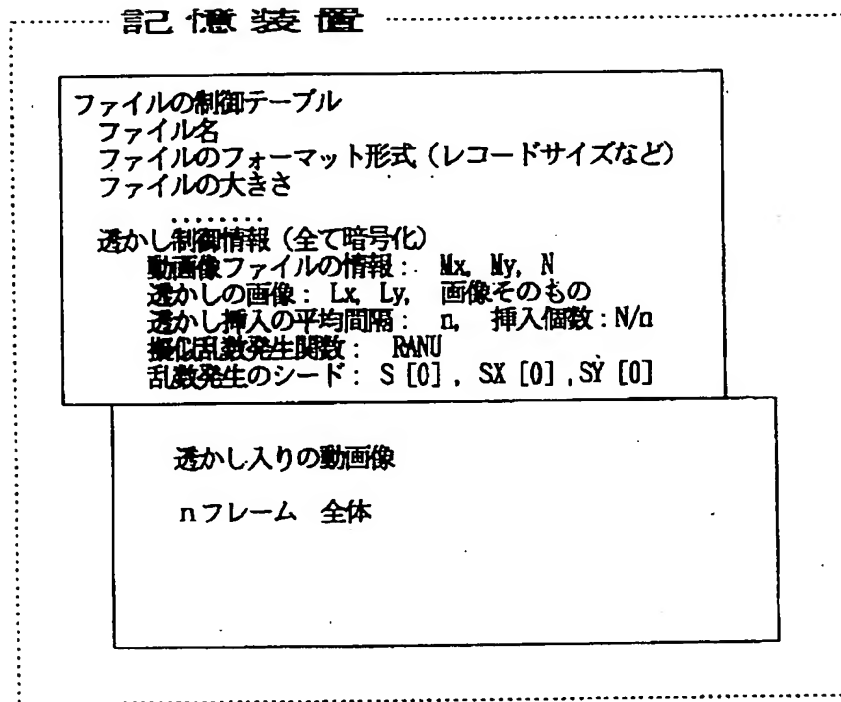 記憶装置
ファイルの制御テーブル
ファイル名
ファイルのフォーマット形式（レコードサイズなど）
ファイルの大きさ
........
透かし制御情報（全て暗号化）
動画像ファイルの情報： Mx, My, N
透かしの画像： Lx, Ly, 画像そのもの
透かし挿入の平均間隔： n, 挿入個数：N/n
擬似乱数発生関数： RANU
乱数発生のシード： S [0] , SX [0] ,SY [0]
透かし入りの動画像
nフレーム 全体